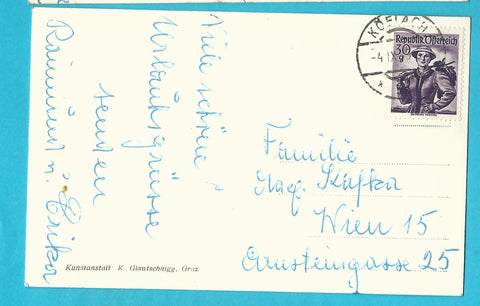 Viele schöne
Urlaubsgrüsse
senden
Raimund u. Erika
KÖFLACH
-4.IX.
Republik Österreich
30 g
Familie
Mag. Kafka
Wien 15
Arnsteingasse 25
Kunstanstalt K. Glantschnigg, Graz